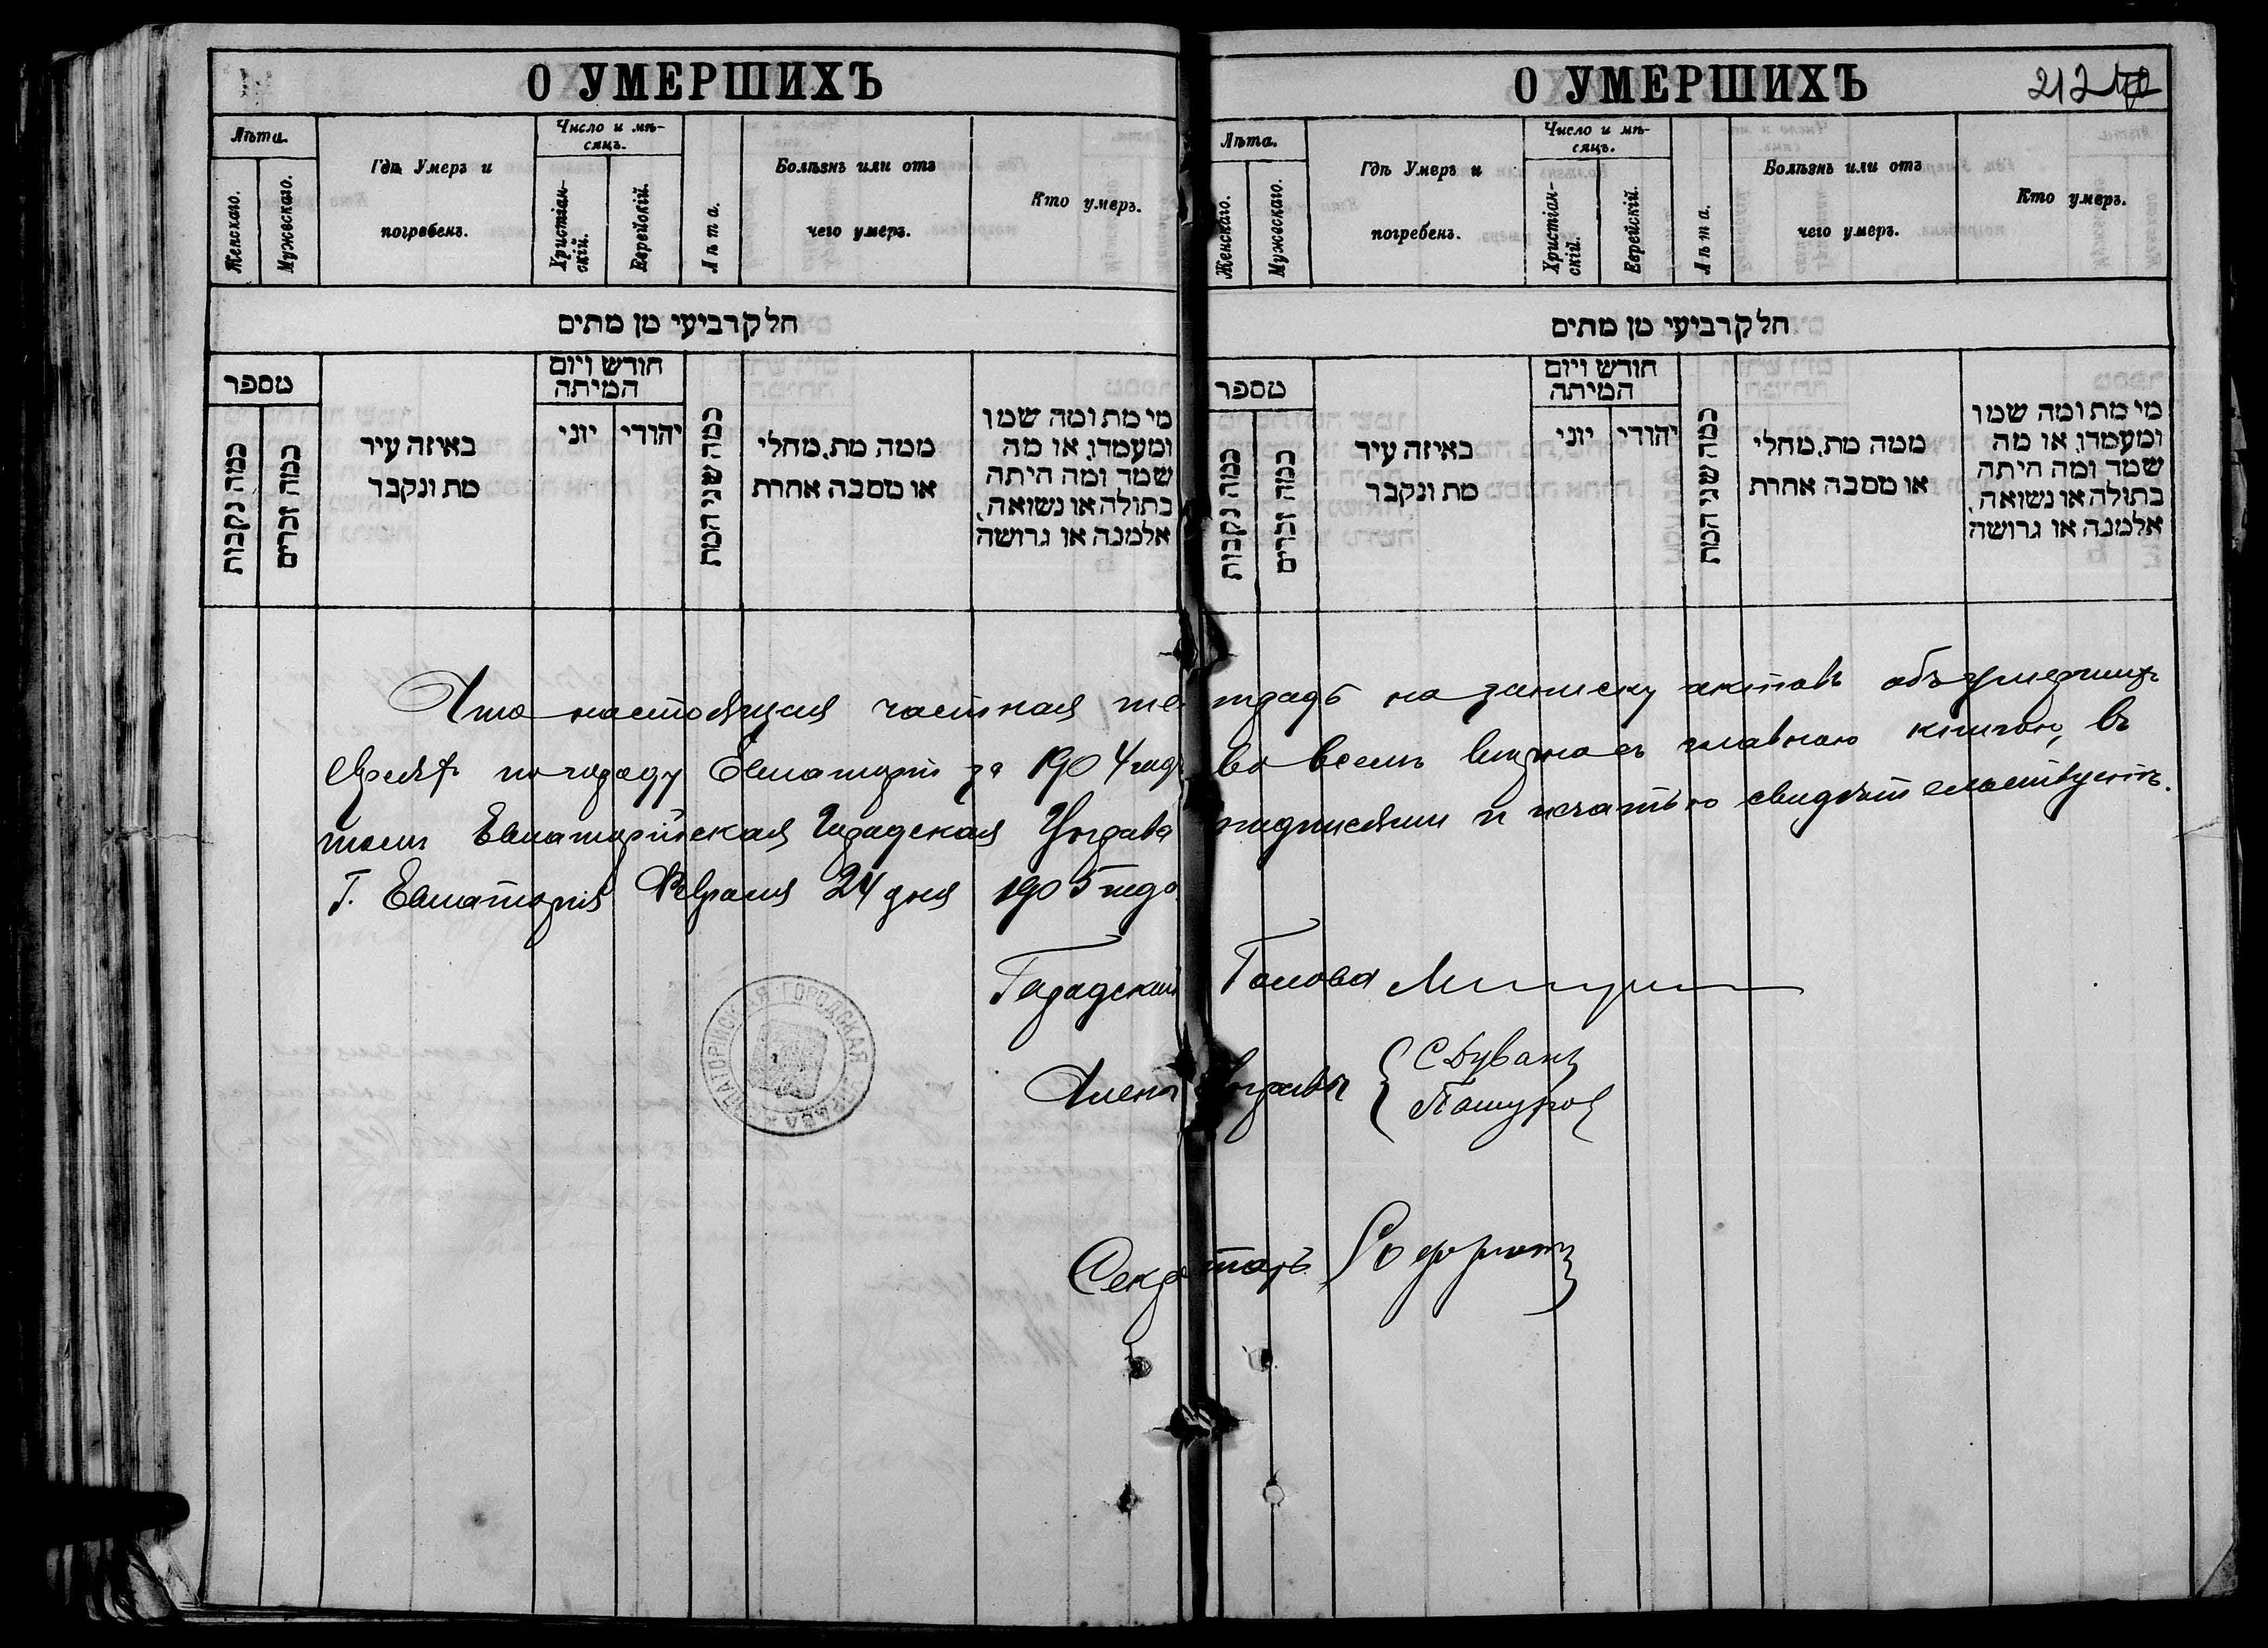 О УМЕРШИХЪ
Лѣта.
Женскаго.
Мужескаго.
Гдѣ Умеръ и
погребенъ.
Число и мѣ-
сяцъ.
Христіан-
скій.
Еврейскій.
Лѣта.
Болѣзнь или отъ
чего умеръ.
Кто умеръ.
חלק רביעי מן מתים
מספר
כמה נקבות
כמה זכרים
באיזה עיר
מת ונקבר
חודש ויום
המיתה
יוני
יהודי
כמה שני המת
ממה מת, מחלי
או מסבה אחרת
מי מת ומה שמו
ומעמדו, או מה
שמה ומה היתה
בתולה או נשואה,
אלמנה או גרושה
О УМЕРШИХЪ
212
Лѣта.
Женскаго.
Мужескаго.
Гдѣ Умеръ и
погребенъ.
Число и мѣ-
сяцъ.
Христіан-
скій.
Еврейскій.
Лѣта.
Болѣзнь или отъ
чего умеръ.
Кто умеръ.
חלק רביעי מן מתים
מספר
כמה נקבות
כמה זכרים
באיזה עיר
מת ונקבר
חודש ויום
המיתה
יוני
יהודי
כמה שני המת
ממה מת, מחלי
או מסבה אחרת
מי מת ומה שמו
ומעמדו, או מה
שמה ומה היתה
בתולה או נשואה,
אלמנה או גרושה
Что настоящая частная тетрадь на записку актовъ объ умершихъ
евреяхъ по городу Евпаторіи за 1904 годъ во всемъ вѣрна съ главною книгою, въ
томъ Евпаторійская Городская Управа подписями и печатью свидѣтельствуетъ.
Г. Евпаторія Февраля 24 дня 1905 года
Городской Голова
Члены Управы С. Дуванъ
Секретарь
ЕВПАТОРІЙСКАЯ ГОРОДСКАЯ УПРАВА